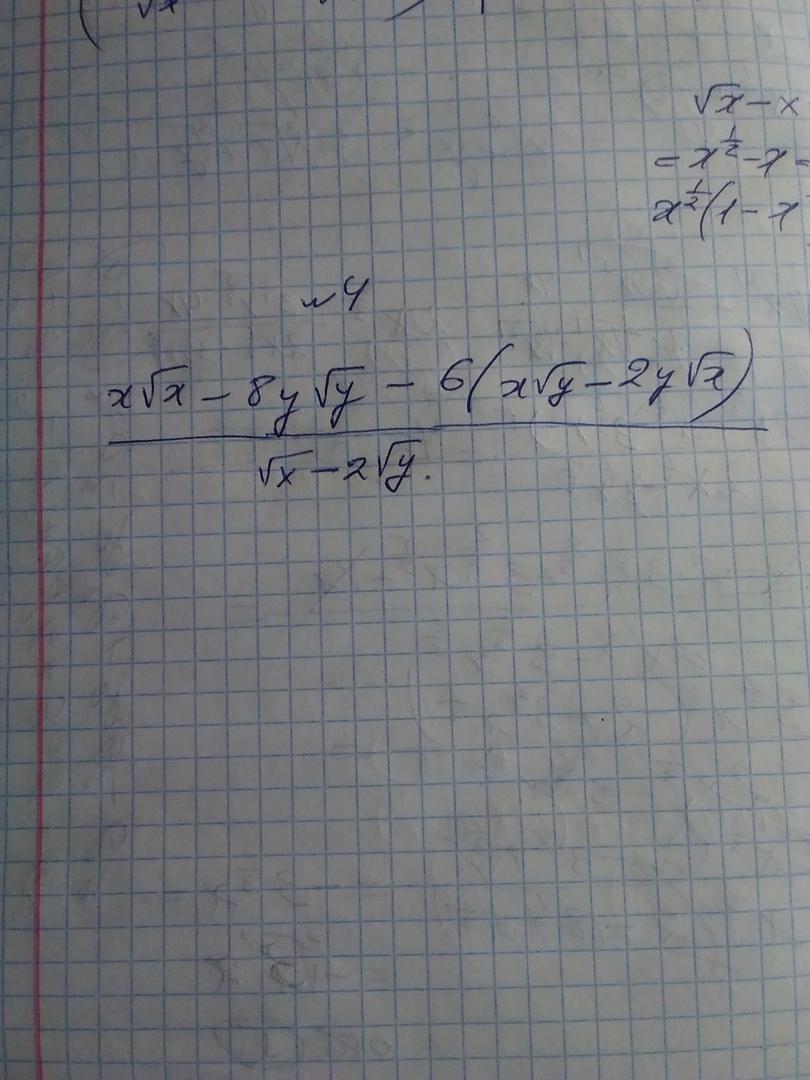 √x
√x − x
= x^(1/2) − x =
x^(1/2)(1 − x
№4
x√x − 8y√y − 6(x√y − 2y√x)
√x − 2√y.